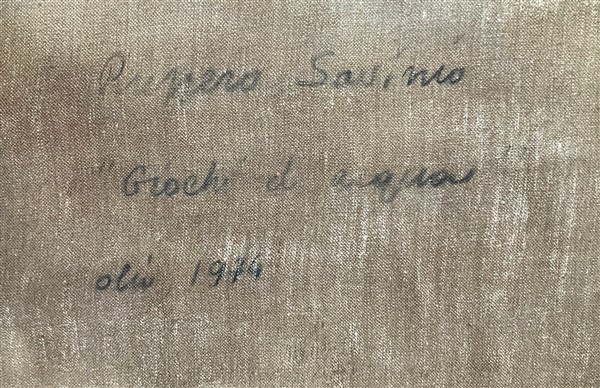 Ruggero Savinio
"Giochi d'acqua"
olio 1974